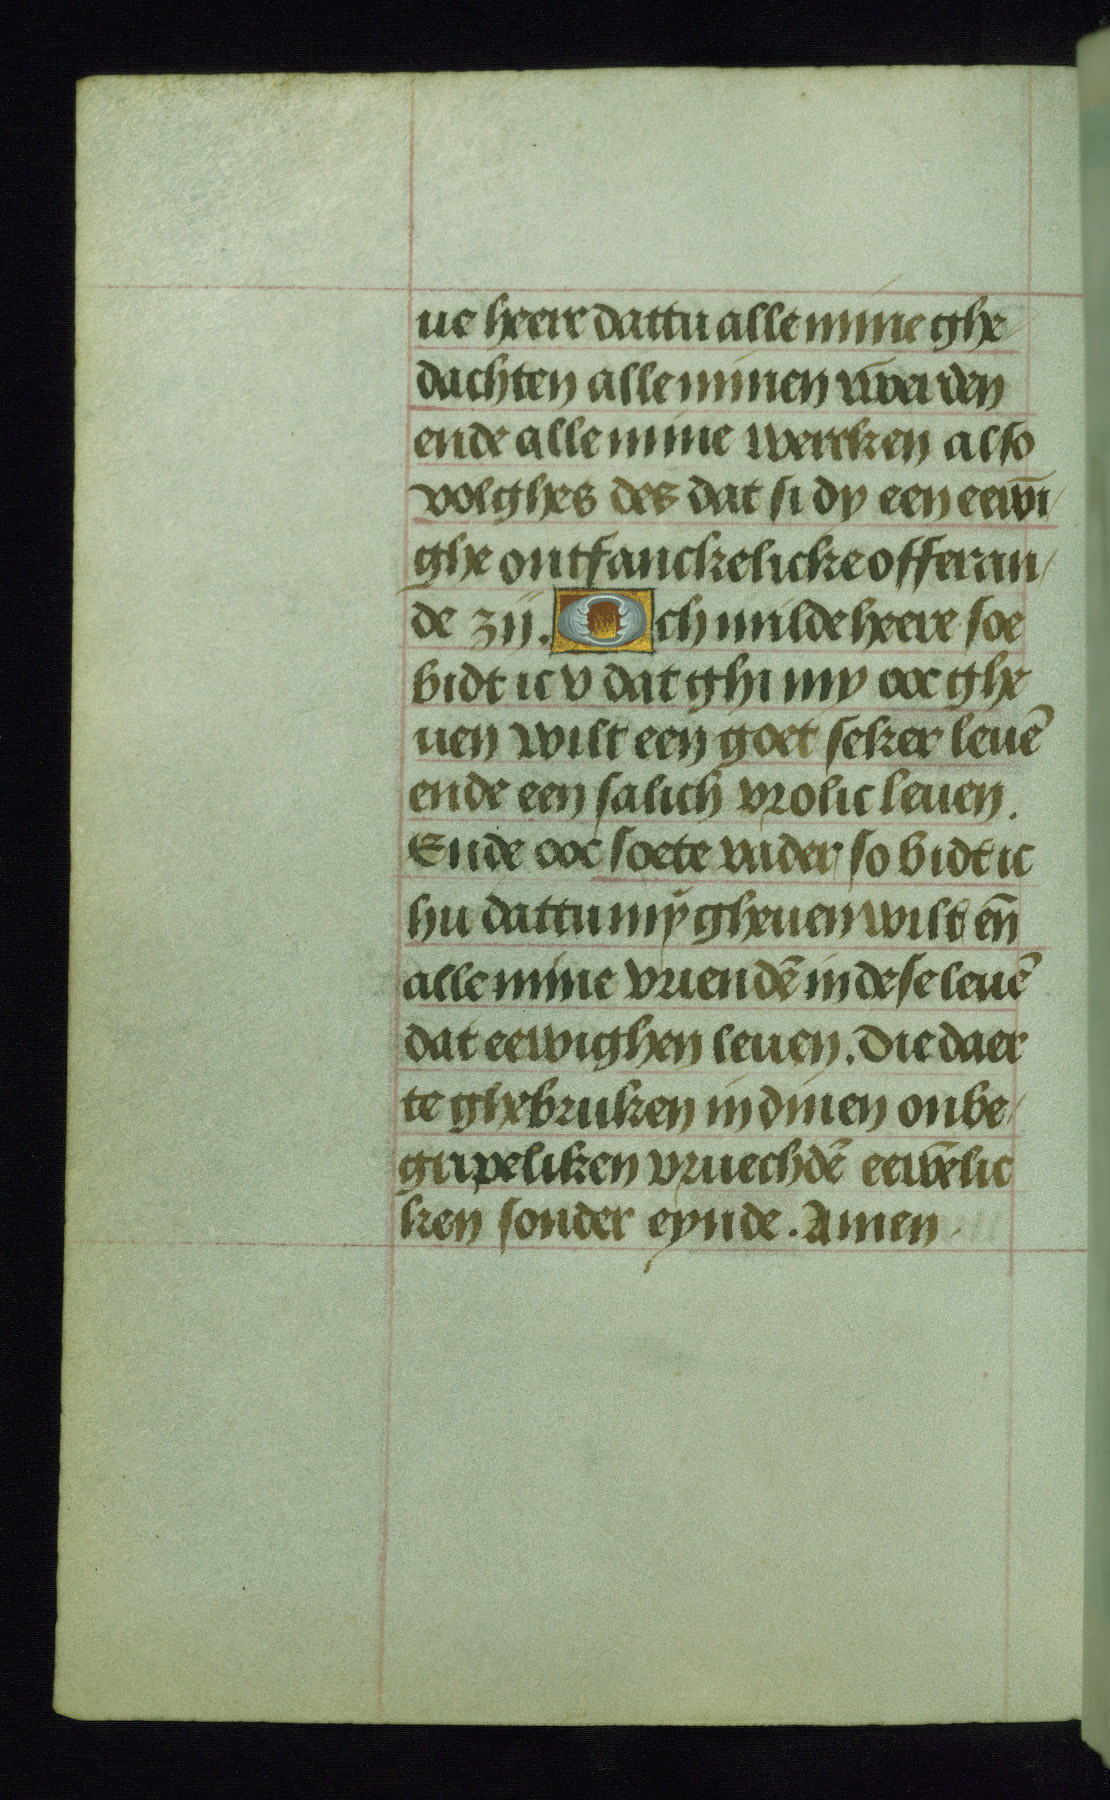 ue heere dattu alle mine ghe/
dachten alle minen w̄erden
ende alle mine wercken also
volghes des dat si dy een eewī/
ghe ontfanckelicke offeran/
de zij. Och milde heere soe
bidt ic v dat ghi my ooc ghe
uen wilt een goet seker leuē
ende een salich vrolic leuen.
Ende ooc soete vader so bidt ic
hu dattu my gheuen wilt en̄
alle mine vriendē in dese leuē
dat eewighen leuen. Die daer
te ghebruken in dinen onbe/
gripeliken vruechdē eewēlic
ken sonder eynde. Amen